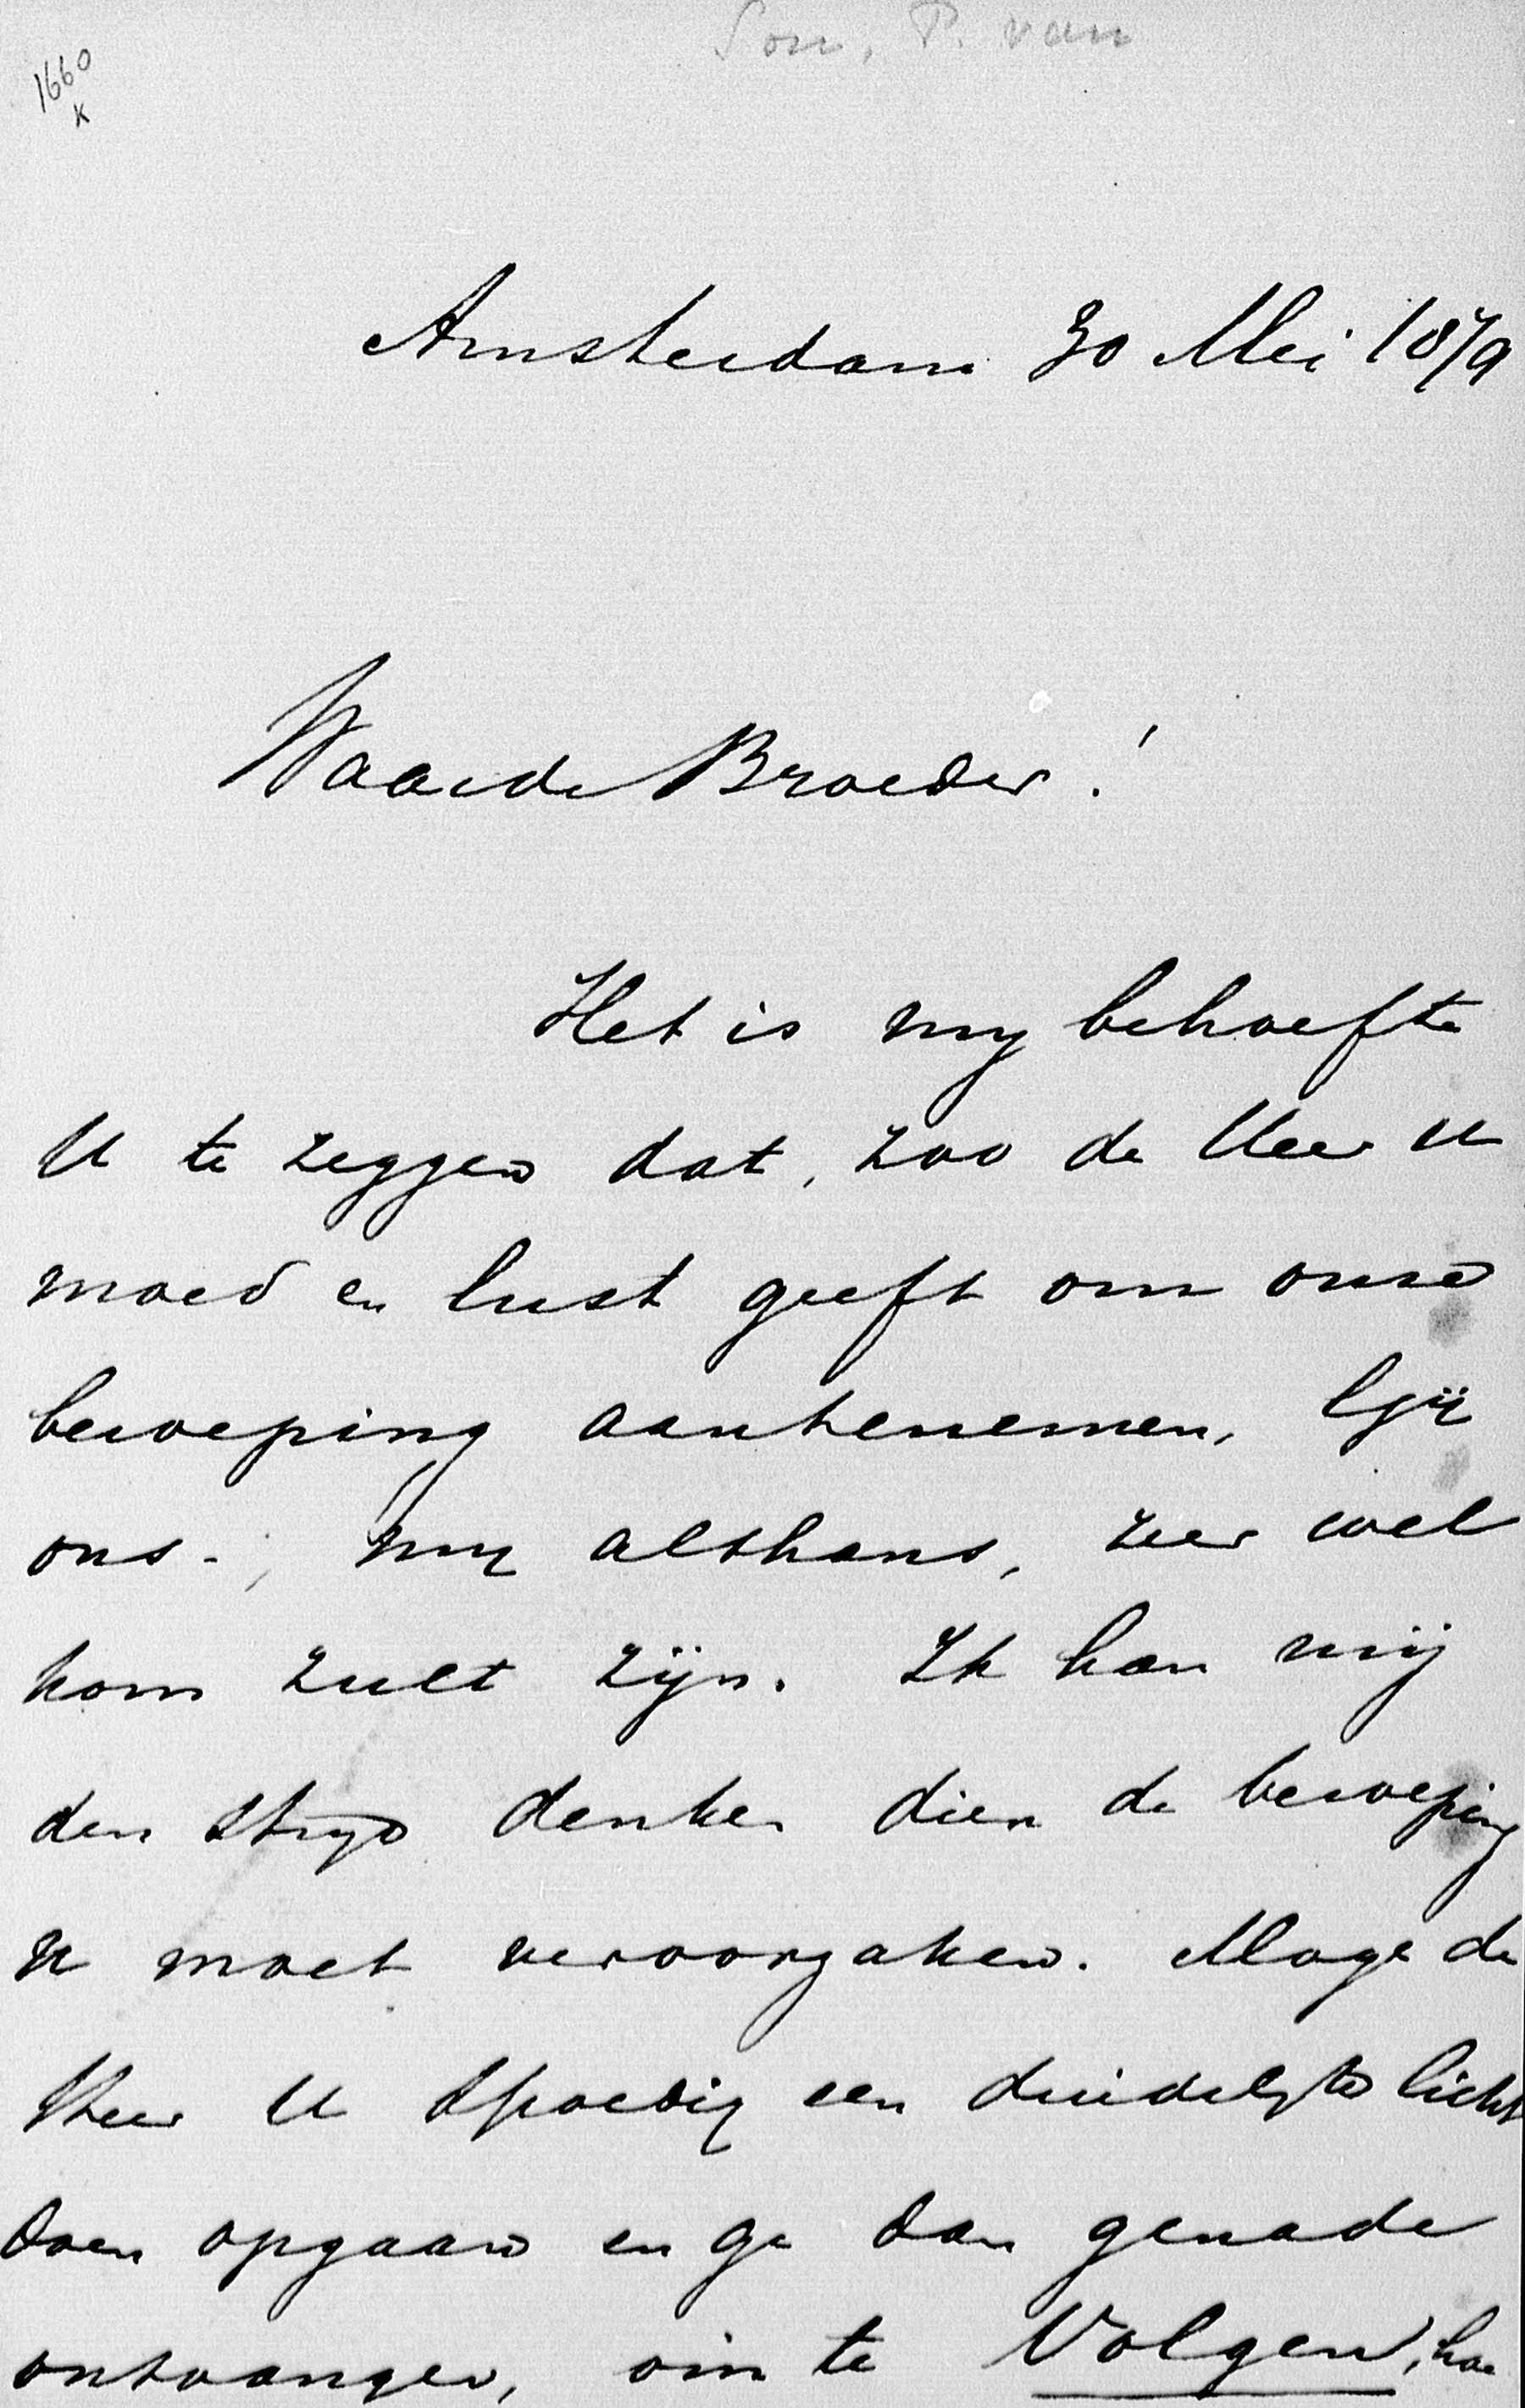 Son, P. van
1660
K
Amsterdam 30 Mei 1879
Waarde Broeder!
Het is my behoefte
U te zeggen dat, zoo de Heer U
moed en lust geeft om onze
beroeping aantenemen, Gij
ons, my althans, zeer wel
kom zult zijn. Ik kan mij
den stryd denken dien de beroeping
U moet veroorzaken. Moge de
Heer U spoedig een duidelyk licht
doen opgaan en ge dan genade
ontvangen, om te Volgen, hoe